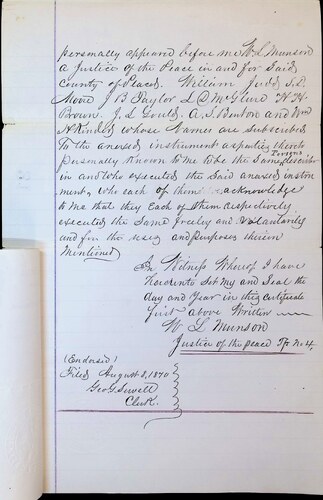 personally appeared before me W. L. Munson
a Justice of the Peace in and for Said
County of Placer. William Judd S. D.
Moore J B Taylor L C McClure H. H.
Brown. J. L. Gould. A. S. Benton and Wm
H Kinder whose Names are subscribed
To the anexed instrument as parties thereto
Persons
personally Known to me to be the Same, describe
in and who executed the Said anexed instru
ment, who each of them acknowledge
to me that they Each of them respectively
executed the Same freely and Voluntarily
and for the uses and purposes therein
Mentioned
In Witness Whereof I have
Hereunto Set my and Seal the
day and Year in this Certificate
first above Written
W L Munson
Justice of the peace Tp No 4.
(Endorsed)
Filed August 3, 1870
Geo. G. Sewell
Clerk.